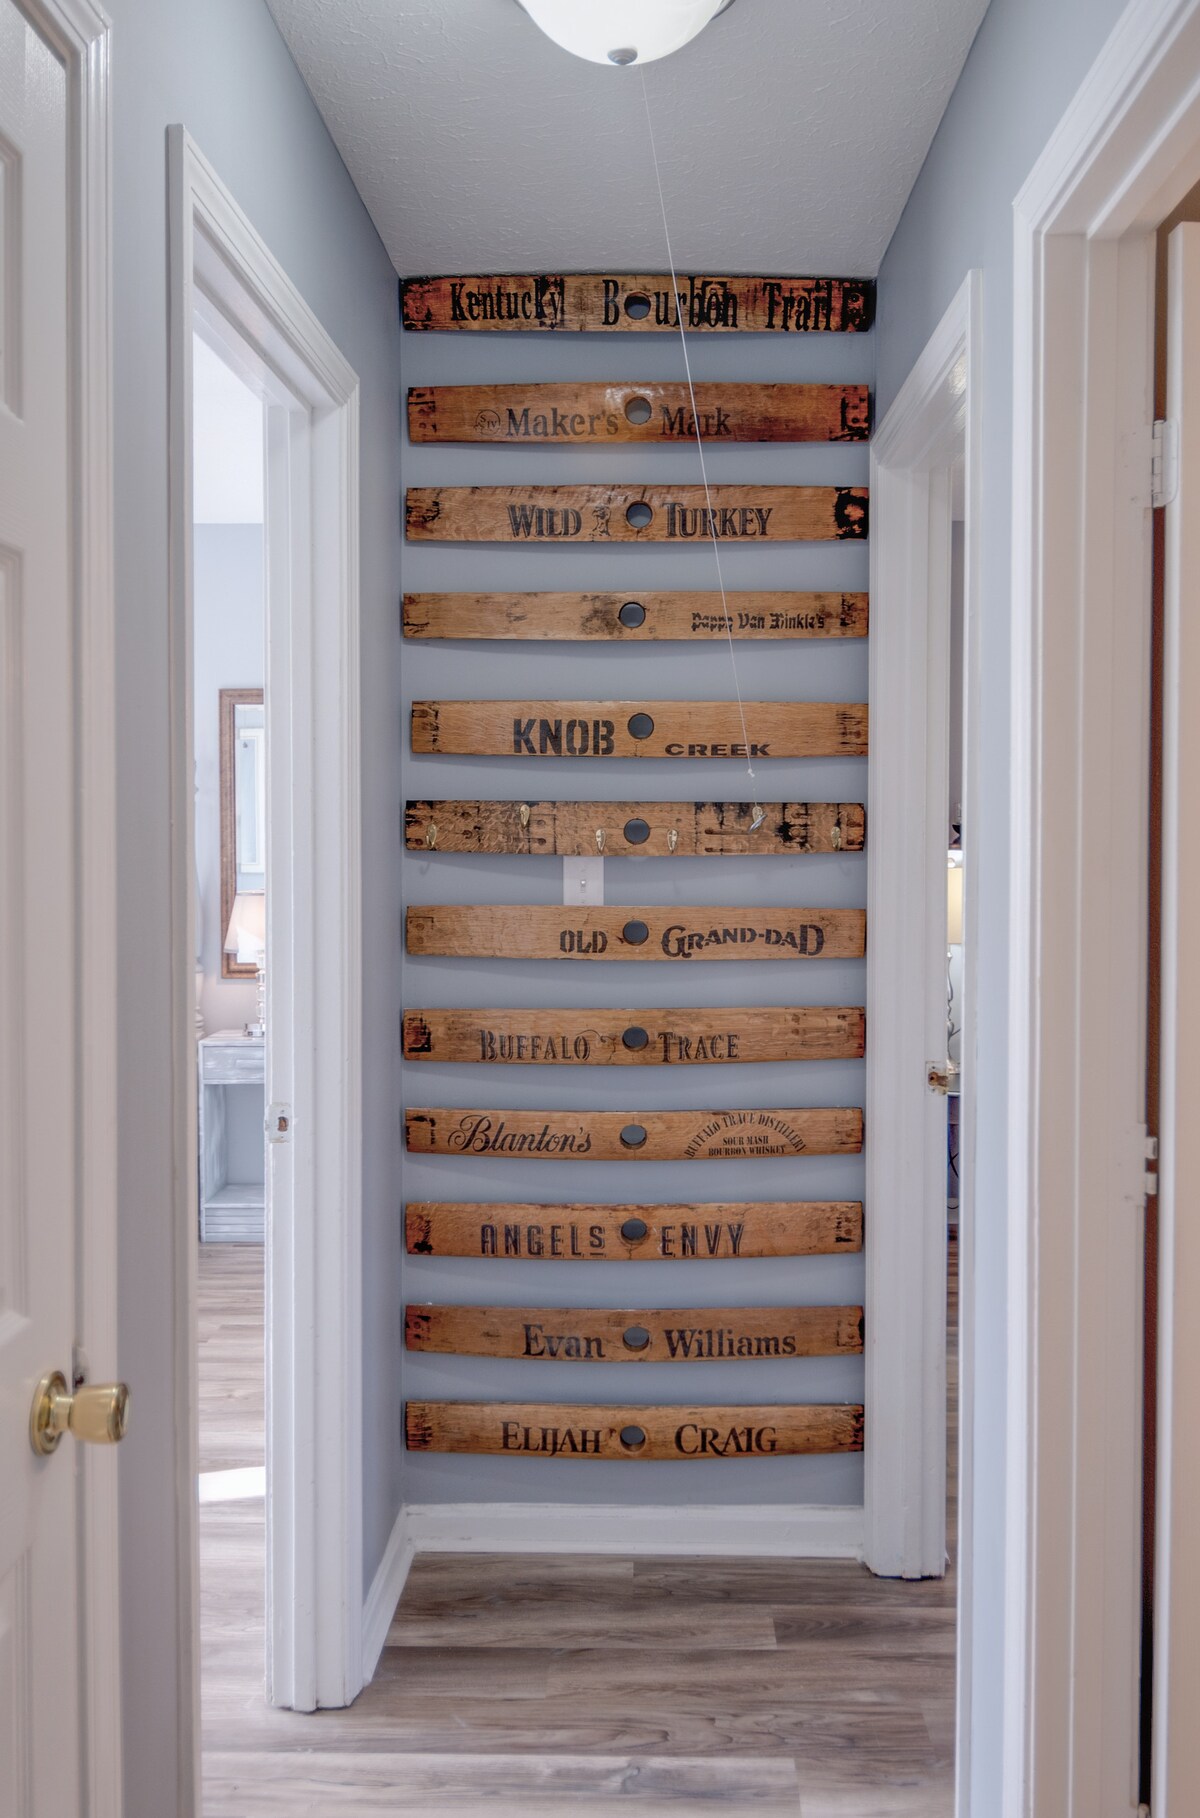 Kentucky Bourbon Trail
SIV Maker's Mark
WILD TURKEY
Pappy Van Winkle's
KNOB CREEK
OLD GRAND-DAD
BUFFALO TRACE
Blanton's
BUFFALO TRACE DISTILLERY
SOUR MASH
BOURBON WHISKEY
ANGELS ENVY
Evan Williams
ELIJAH CRAIG